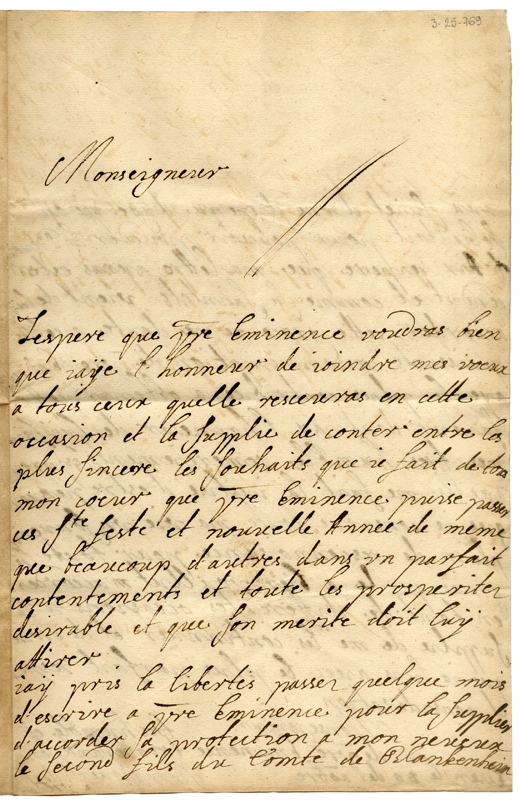 3-25-769
Monseigneur
Jespere que vre Eminence voudras bien
que iaÿe l'honneur de ioindre mes voeux
a tous ceux quelle resceuras en cette
occasion et la supplie de conter entre les
plus sincere les souhaits que ie fait de tou
mon coeur que vre Eminence puise passer
ces ste feste et nouvelle Année de meme
que beaucoup d'autres dans vn parfait
contentements et toute les prosperitez
desirable et que son merite doit luÿ
attirer
iaÿ pris la libertés passez quelque mois
d'escrire a vre Eminence pour la supplier
d'accorder sa protection a mon neveux
le second fils du Comte de Blankenheim